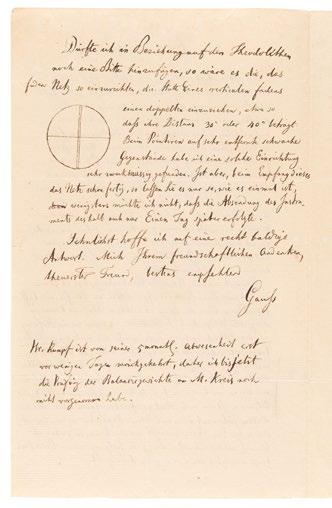 Dürfte ich in Beziehung auf den Theodolithen
noch eine Bitte hinzufügen, so wäre es die, das
faden Netz so einzurichten, daß statt Eines verticalen fadens
einen doppelten einzuziehen, etwa so
daß ihre Distanz 30" oder 40" beträgt
Beim Pointiren auf sehr entfernte schwache
Gegenstände habe ich eine solche Einrichtung
sehr zweckmässig gefunden. Ist aber, beim Empfang dieses
das Netz schon fertig, so lassen Sie es nur so, wie es einmal ist,
denn wenigstens möchte ich nicht, daß die Absendung des Instru-
ments deshalb auch nur Einen Tag später erfolgte.
Sehnlichst hoffe ich auf eine recht baldige
Antwort. Mich Ihrem freundschaftlichen Andenken,
theuerster Freund, bestens empfehlend
Gauß
Hr. Rumpf ist von seiner 5monatl. Abwesenheit erst
vor wenigen Tagen zurückgekehrt, daher ich bis jetzt
die des Balancegewichts am M. Kreis noch
nicht vorgenommen habe.